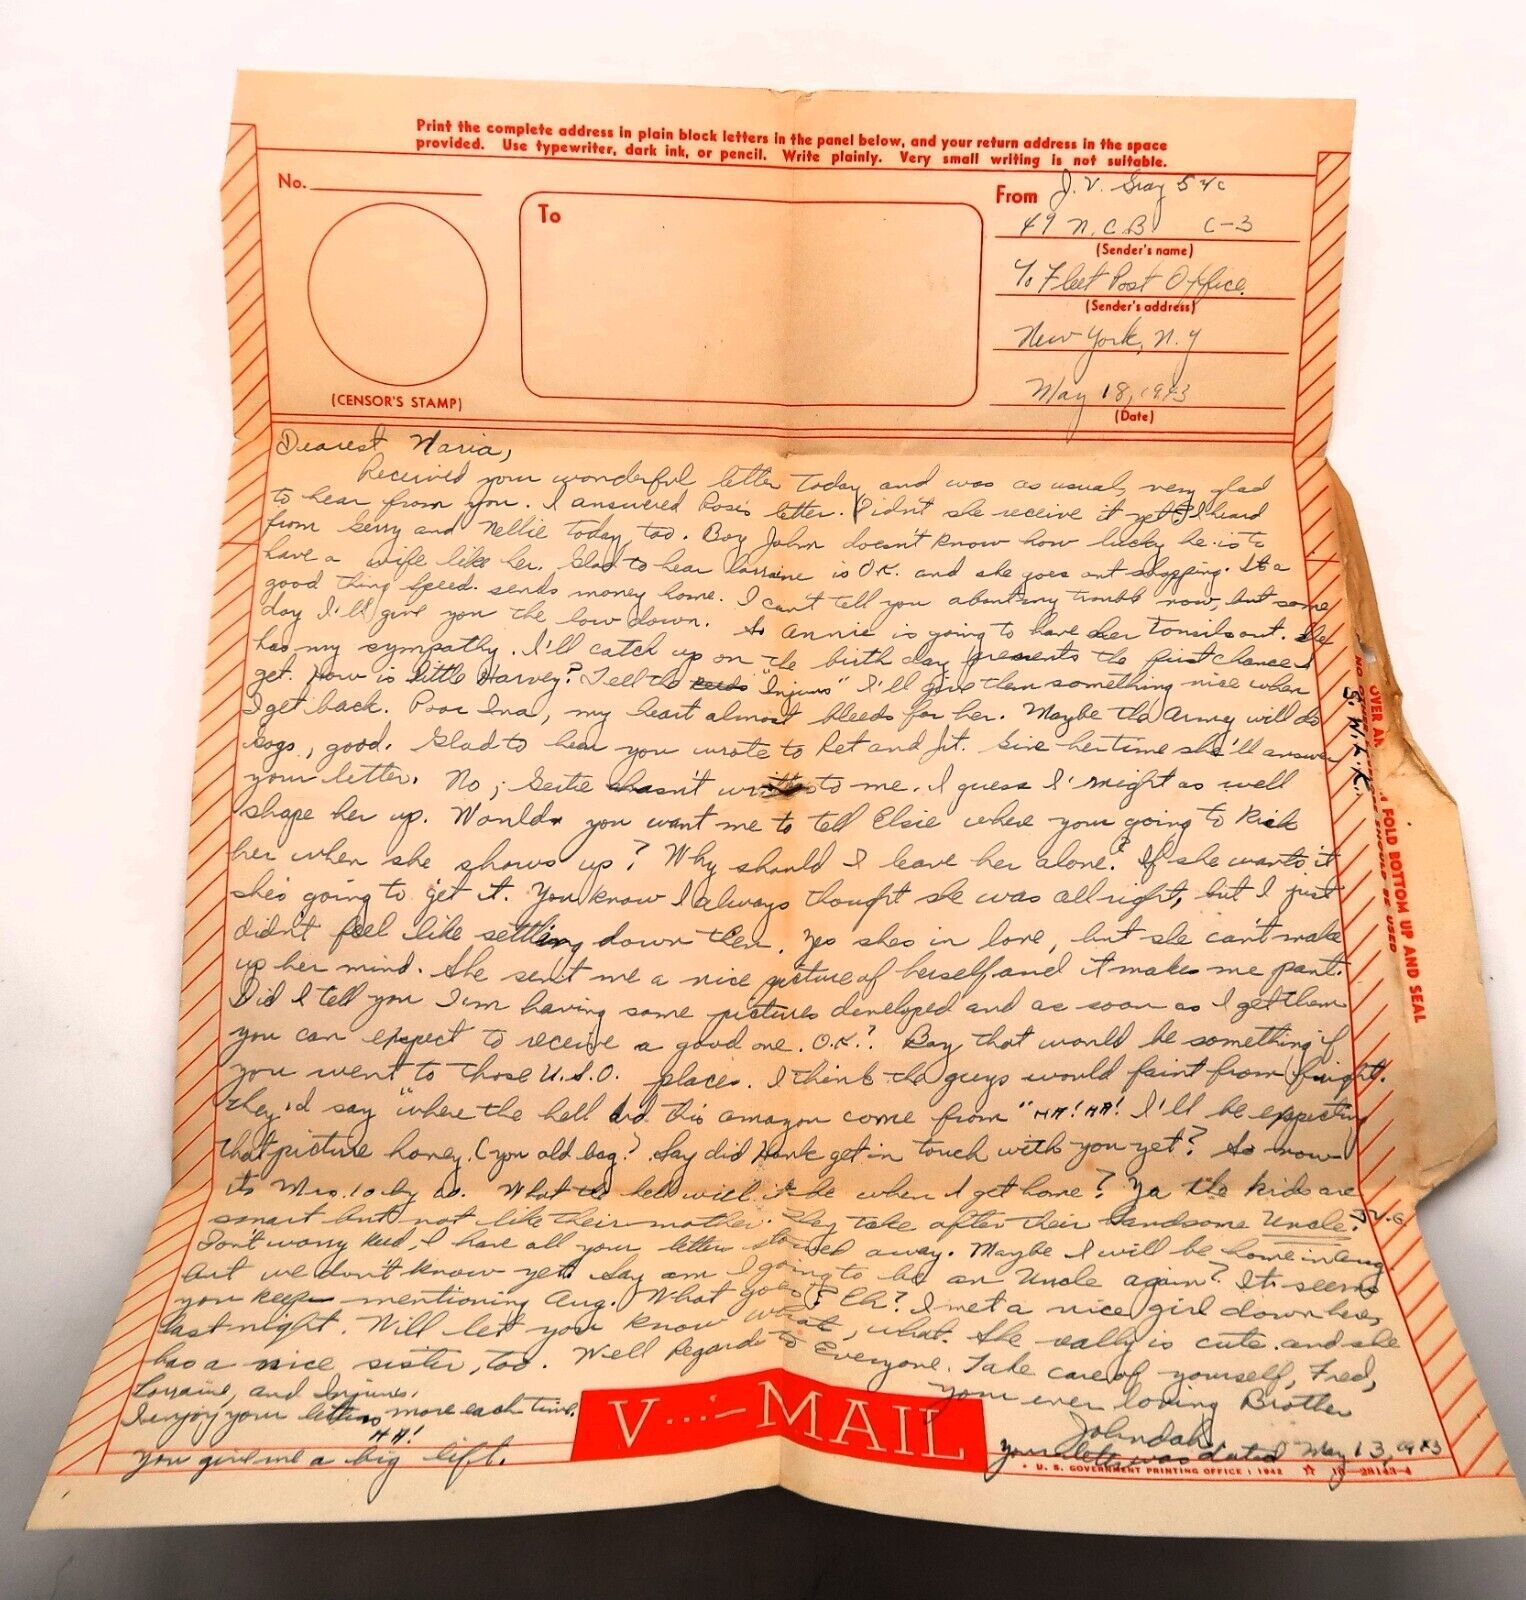 Print the complete address in plain block letters in the panel below, and your return address in the space
provided. Use typewriter, dark ink, or pencil. Write plainly. Very small writing is not suitable.
No.
To
(CENSOR'S STAMP)
From J. V. Gray S 2/c
49 N.C.B. C-3
(Sender's name)
c/o Fleet Post Office
(Sender's address)
New York, N.Y
May 18, 1943
(Date)
Dearest Maria,
Received your wonderful letter today and was as usual, very glad
to hear from you. I answered Rosie's letter. Didn't she receive it yet? I heard
from Gerry and Nellie today, too. Boy John doesn't know how lucky he is to
have a wife like her. Glad to hear Lorraine is O.K. and she goes out shopping. Its a
good thing Speed sends money home. I can't tell you about my troubles now, but some
day I'll give you the low down. So Annie is going to have her tonsils out. She
has my sympathy. I'll catch up on the birthday presents the first chance I
get. How is little Harvey? Tell the "Injuns" I'll give them something nice when
I get back. Poor Ina, my heart almost bleeds for her. Maybe the Army will do
good. Glad to hear you wrote to Ret and Jit. Give her time she'll answer
your letter. No, Gertie hasn't to me. I guess I might as well
shape her up. Would you want me to tell Elsie where your going to kick
her when she shows up? Why should I leave her alone? If she wants it
she's going to get it. You know I always thought she was all right, but I just
didn't feel like settling down then. Yes shes in love, but she can't make
up her mind. She sent me a nice picture of herself and it makes me pant.
Did I tell you I am having some pictures developed and as soon as I get them
you can expect to receive a good one. O.K.? Boy that would be something if
you went to those U.S.O. places. I think the guys would faint from fright.
They'd say "where the hell did this amazon come from" HA! HA! I'll be expecting
that picture honey. (you old bag? Say did Hank get in touch with you yet? So now
its Mrs. What the hell will it be when I get home? Ya the kids are
smart but not like their mother. They take after their handsome Uncle. J.V.G
Don't worry kid, I have all your letters stored away. Maybe I will be home in Aug
but we don't know yet. Say am I going to be an Uncle again? It seems
you keep mentioning Aug. What goes? Eh? I met a nice girl down here
last night. Will let you know what, what. She really is cute and she
has a nice sister, too. Well Regards to Everyone. Take care of yourself, Fred,
Lorraine, and Injuns. your ever loving Brother
I enjoy your letters more each time. Johndah
HA!
You give me a big lift.
your letter was dated May 13, 1943
V···—MAIL
U. S. GOVERNMENT PRINTING OFFICE : 1942 ☆ 16—28143-4
FOLD BOTTOM UP AND SEAL
S.W.A.K.